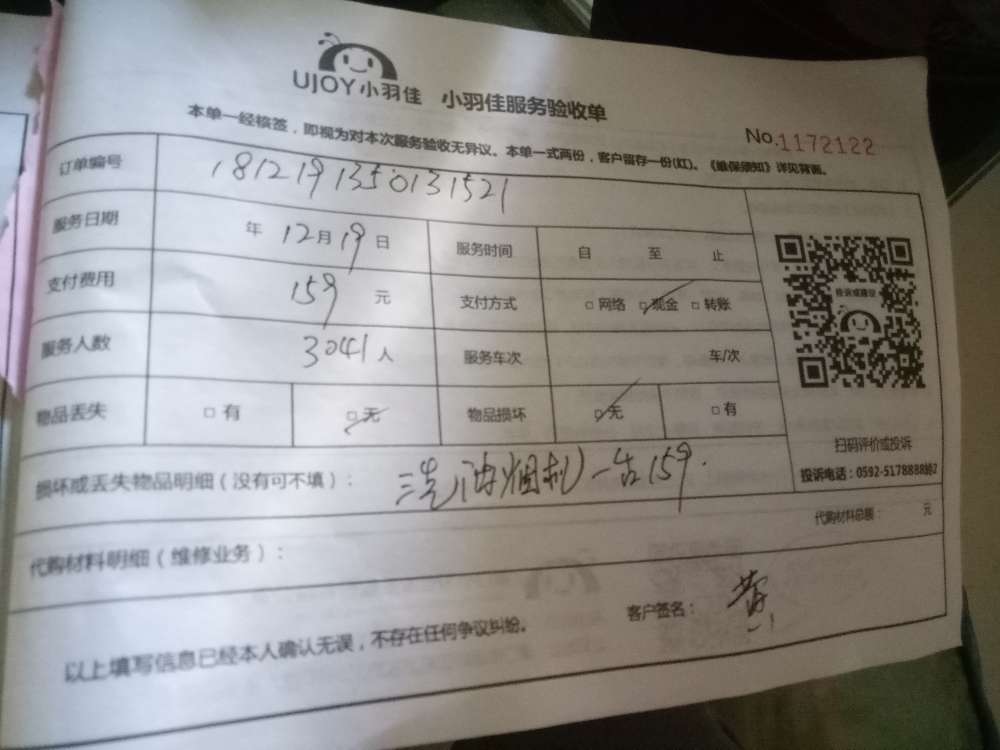 UJOY小羽佳 小羽佳服务验收单
No.1172122
本单一经核签，即视为对本次服务验收无异议。本单一式两份，客户留存一份(红)。《维保须知》详见背面。
订单编号 1812191350131521
服务日期 年 12月19日 服务时间 自 至 止
支付费用 159 元 支付方式 □网络 □现金 □转账
服务人数 3041人 服务车次 车/次
物品丢失 □有 □无 物品损坏 □无 □有
投诉或建议
扫码评价或投诉
投诉电话：0592-5178888转2
损坏或丢失物品明细（没有可不填）： 洗油烟机一台159.
代购材料总额： 元
代购材料明细（维修业务）：
客户签名： 黄
以上填写信息已经本人确认无误，不存在任何争议纠纷。